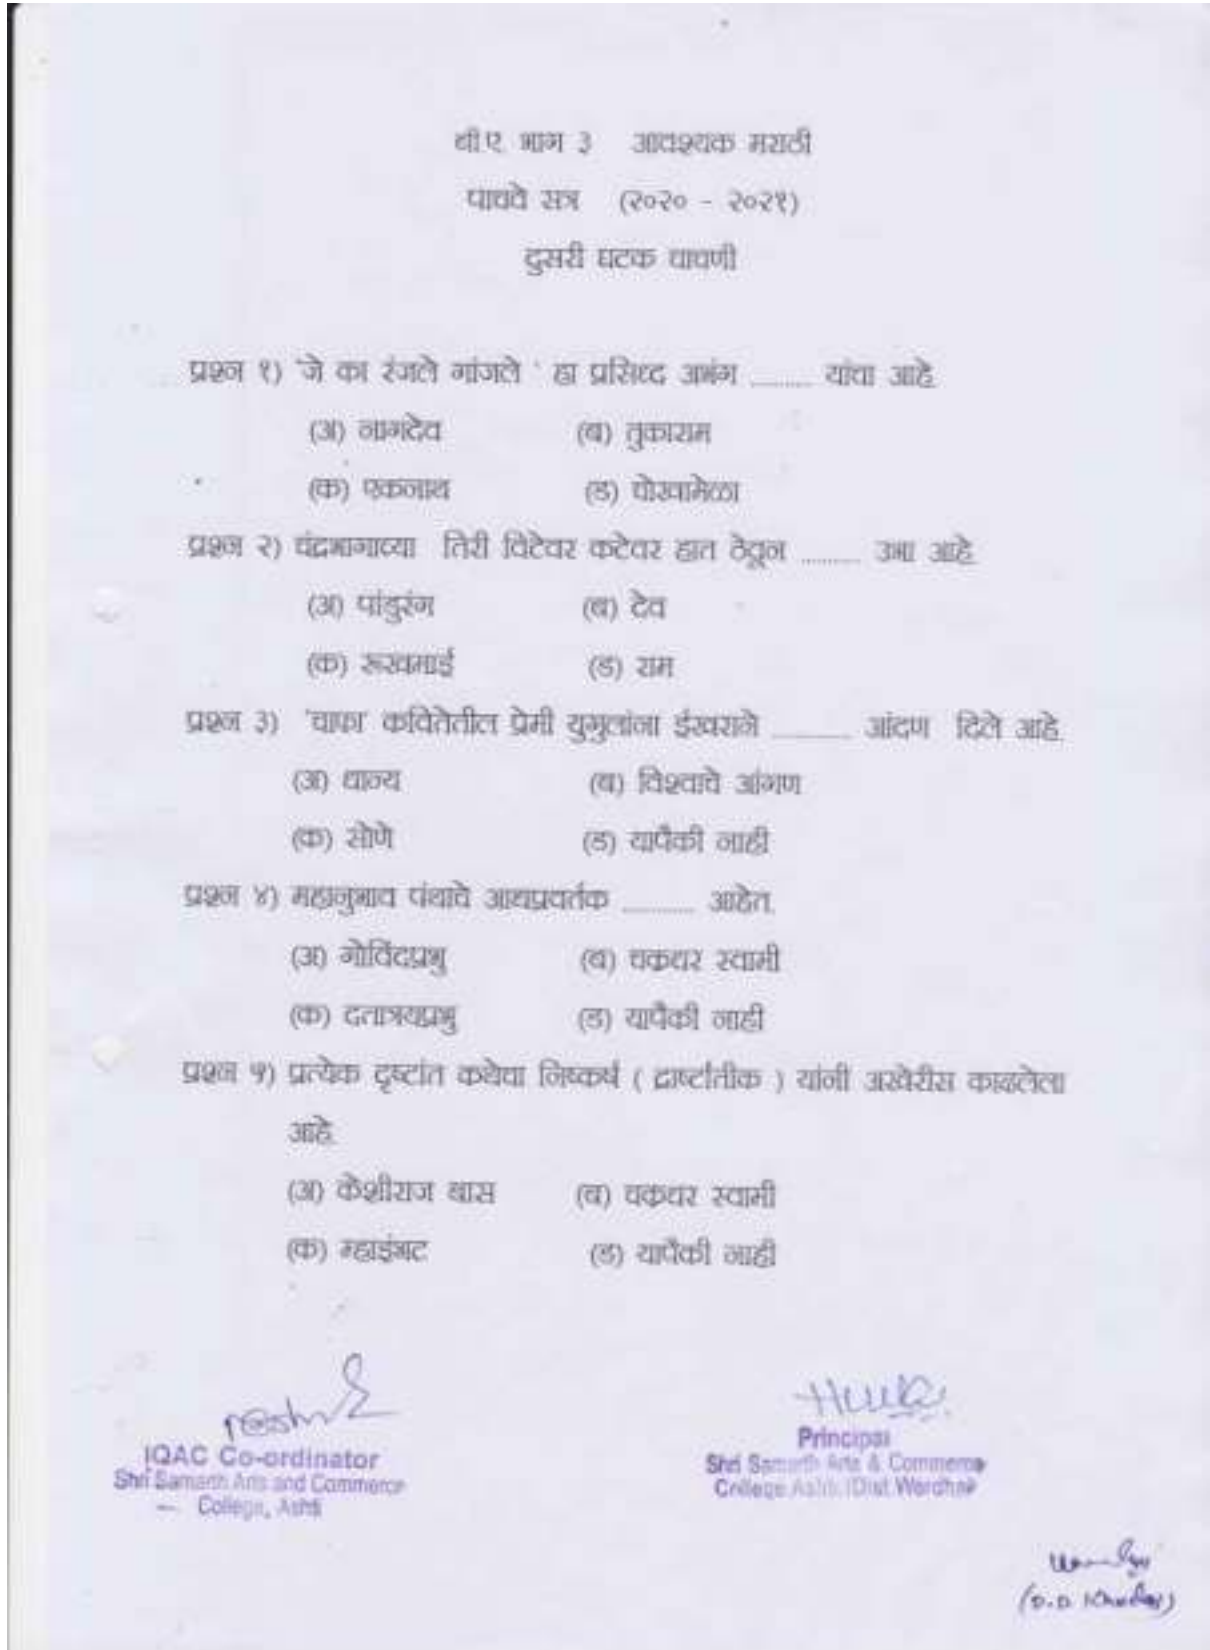 बी.ए. भाग ३ आवश्यक मराठी
पाचवे सत्र (२०२० - २०२१)
दुसरी घटक चाचणी
प्रश्न १) 'जे का रंजले गांजले ' हा प्रसिध्द अभंग .......... यांचा आहे.
(अ) नागदेव (ब) तुकाराम
(क) एकनाथ (ड) चोखामेळा
प्रश्न २) चंद्रभागाच्या तिरी विटेवर कटेवर हात ठेवून .......... उभा आहे.
(अ) पांडुरंग (ब) देव
(क) रूखमाई (ड) राम
प्रश्न ३) 'चाफा' कवितेतील प्रेमी युगुलांना ईश्वराने ............ आंदण दिले आहे.
(अ) धान्य (ब) विश्वाचे आंगण
(क) सोणे (ड) यापैकी नाही
प्रश्न ४) महानुभाव पंथाचे आद्यप्रवर्तक ............ आहेत.
(अ) गोविंदप्रभु (ब) चक्रधर स्वामी
(क) दत्तात्रयप्रभु (ड) यापैकी नाही
प्रश्न ५) प्रत्येक दृष्टांत कथेचा निष्कर्ष ( द्रार्ष्टांतीक ) यांनी अखेरीस काढलेला
आहे.
(अ) केशीराज बास (ब) चक्रधर स्वामी
(क) म्हाइंभट (ड) यापैकी नाही
IQAC Co-ordinator
Shri Samarth Arts and Commerce
College, Ashti
Principal
Shri Samarth Arts & Commerce
College Ashti (Dist. Wardha)